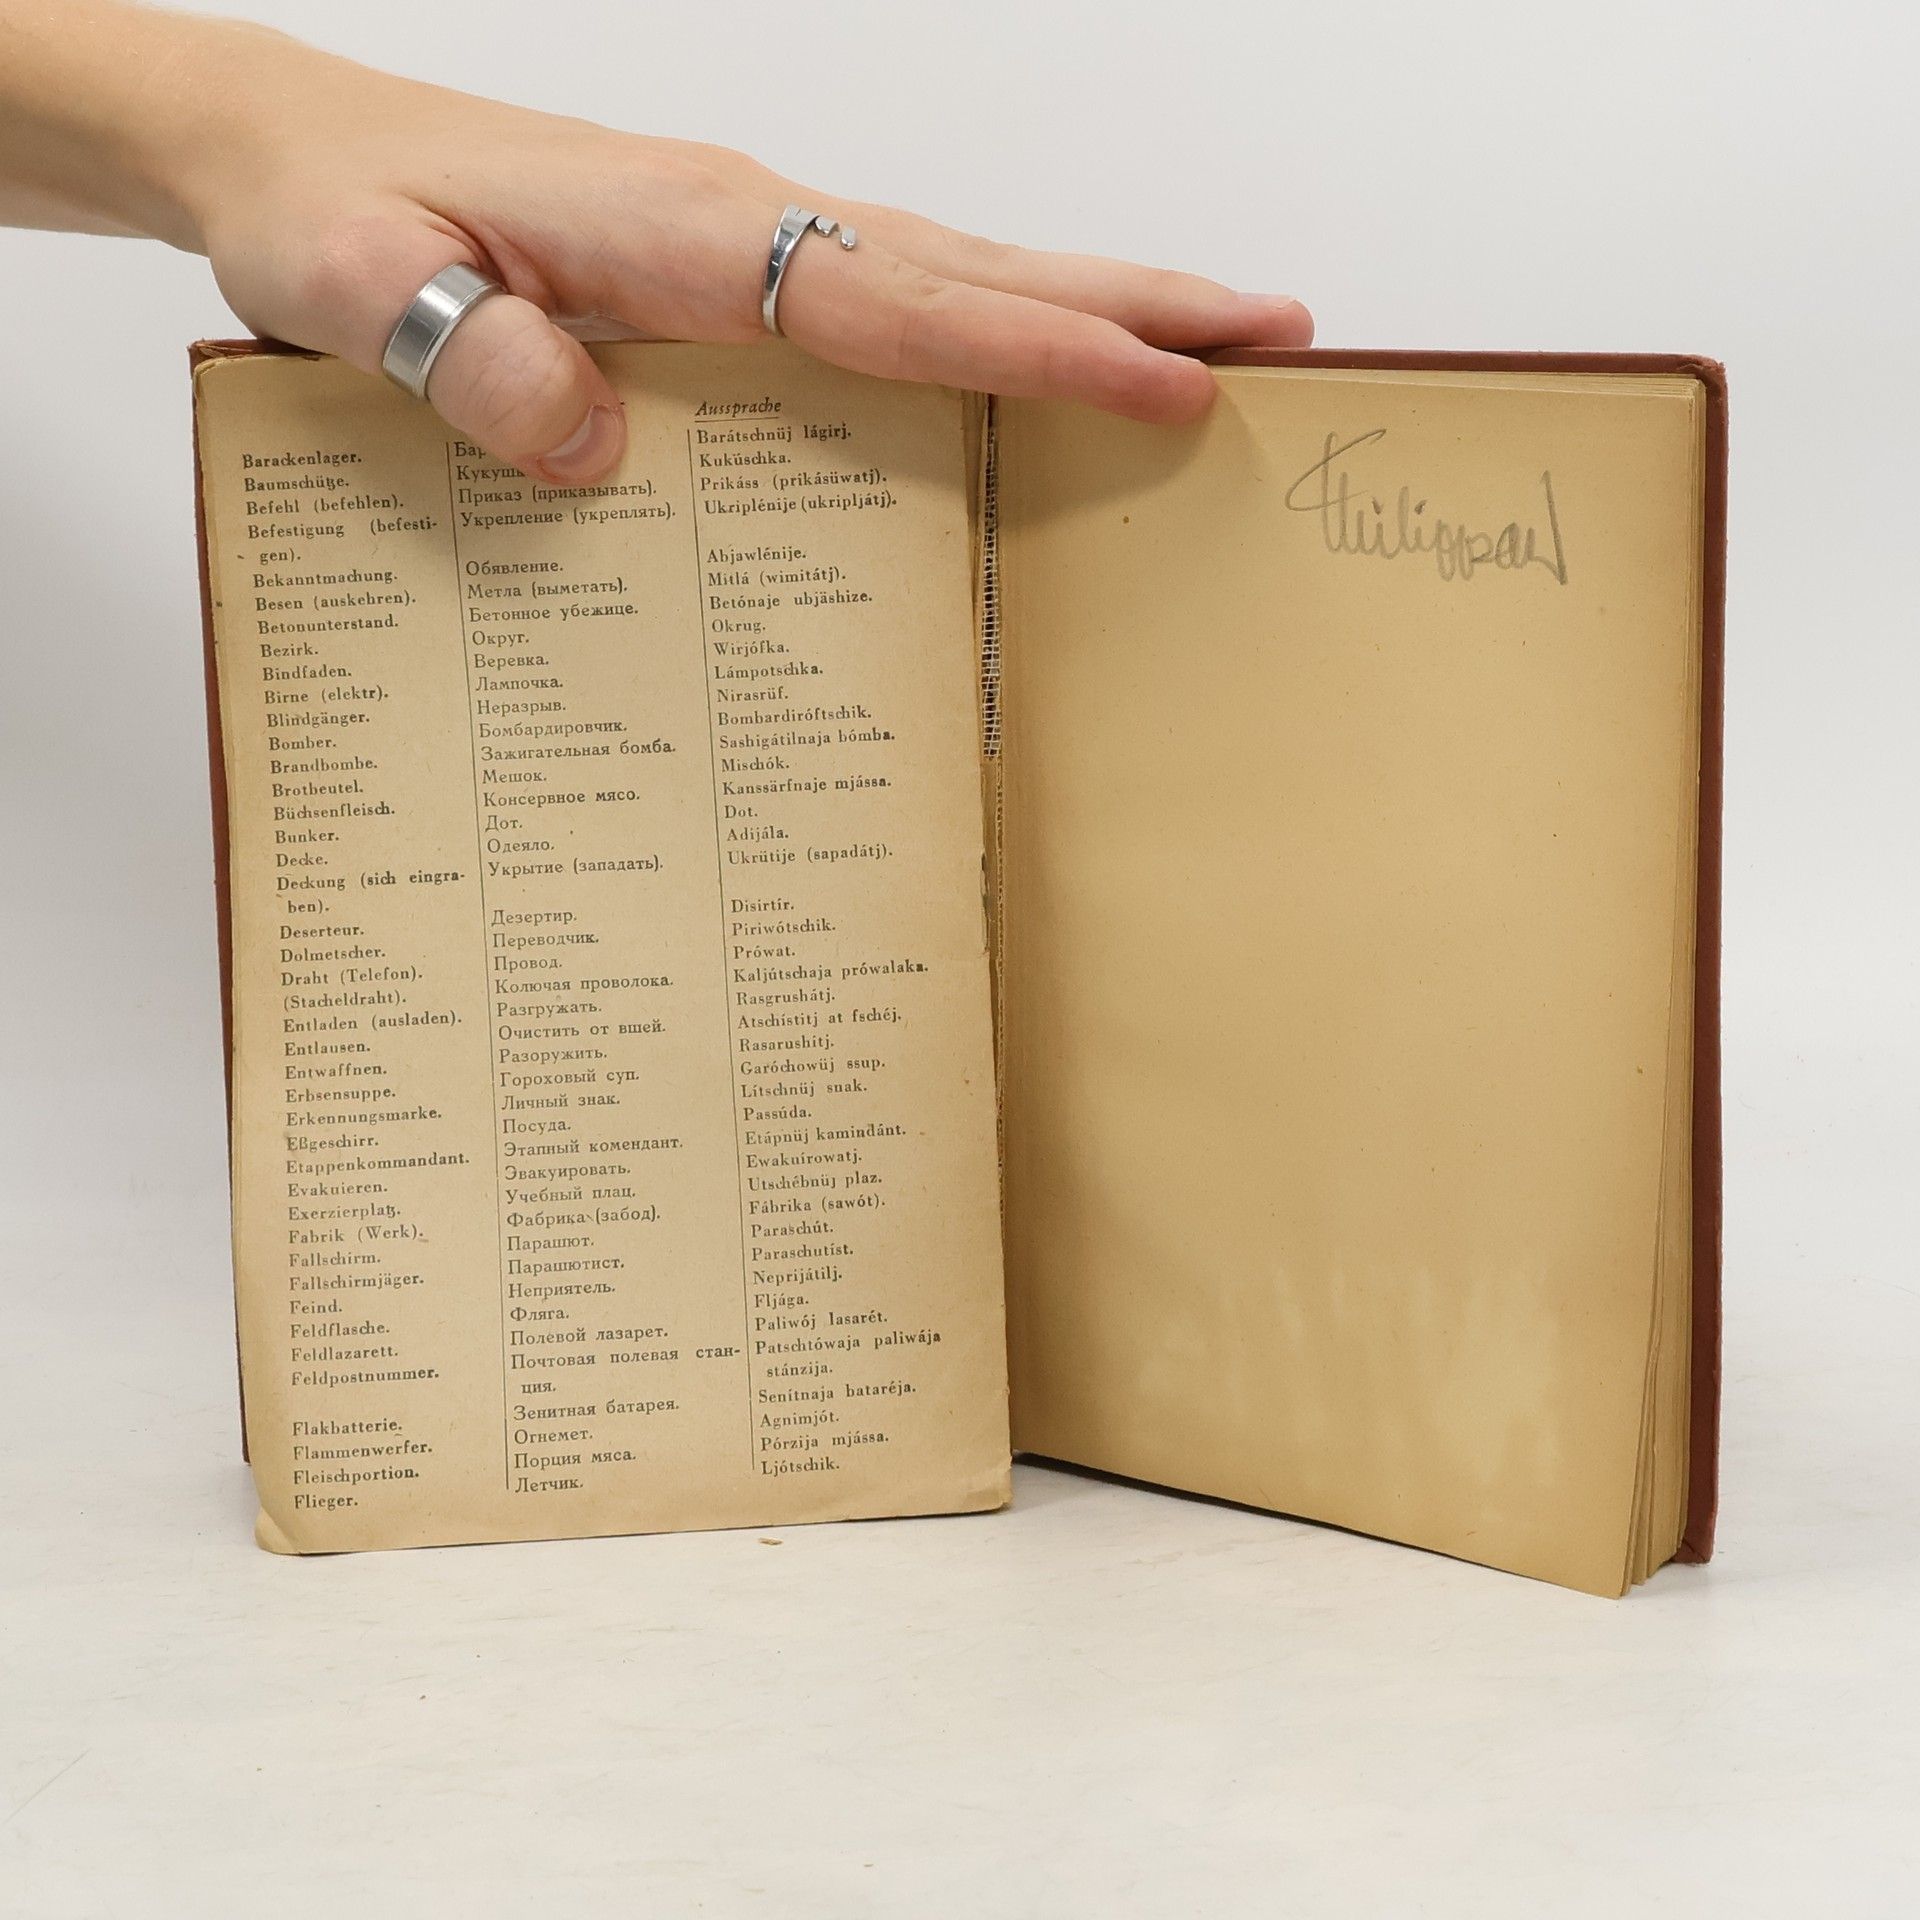 Aussprache
Barackenlager. Barátschnüj lágirj.
Baumschütze. Kukúschka.
Befehl (befehlen). Приказ (приказывать). Prikáss (prikásüwatj).
Befestigung (befesti- Укрепление (укреплять). Ukriplénije (ukripljátj).
gen).
Bekanntmachung. Обявление. Abjawlénije.
Besen (auskehren). Метла (выметать). Mitlá (wimitátj).
Betonunterstand. Бетонное убежице. Betónaje ubjäshize.
Bezirk. Округ. Okrug.
Bindfaden. Веревка. Wirjófka.
Birne (elektr). Лампочка. Lámpotschka.
Blindgänger. Неразрыв. Nirasrüf.
Bomber. Бомбардировчик. Bombardiróftschik.
Brandbombe. Зажигательная бомба. Sashigátilnaja bómba.
Brotbeutel. Мешок. Mischók.
Büchsenfleisch. Консервное мясо. Kanssärfnaje mjássa.
Bunker. Дот. Dot.
Decke. Одеяло. Adijála.
Deckung (sich eingra- Укрытие (западать). Ukrütije (sapadátj).
ben).
Deserteur. Дезертир. Disirtír.
Dolmetscher. Переводчик. Piriwótschik.
Draht (Telefon). Провод. Prówat.
(Stacheldraht). Колючая проволока. Kaljútschaja prówalaka.
Entladen (ausladen). Разгружать. Rasgrushátj.
Entlausen. Очистить от вшей. Atschístitj at fschéj.
Entwaffnen. Разоружить. Rasarushítj.
Erbsensuppe. Гороховый суп. Garóchowüj ssup.
Erkennungsmarke. Личный знак. Lítschnüj snak.
Eßgeschirr. Посуда. Passúda.
Etappenkommandant. Этапный комендант. Etápnüj kamindánt.
Evakuieren. Эвакуировать. Ewakuírowatj.
Exerzierplatz. Учебный плац. Utschébnüj plaz.
Fabrik (Werk). Фабрика (забод). Fábrika (sawót).
Fallschirm. Парашют. Paraschút.
Fallschirmjäger. Парашютист. Paraschutíst.
Feind. Неприятель. Neprijátilj.
Feldflasche. Фляга. Fljága.
Feldlazarett. Полевой лазарет. Paliwój lasarét.
Feldpostnummer. Почтовая полевая стан- Patschtówaja paliwája
ция. stánzija.
Flakbatterie. Зенитная батарея. Senítnaja bataréja.
Flammenwerfer. Огнемет. Agnimjót.
Fleischportion. Порция мяса. Pórzija mjássa.
Flieger. Летчик. Ljótschik.